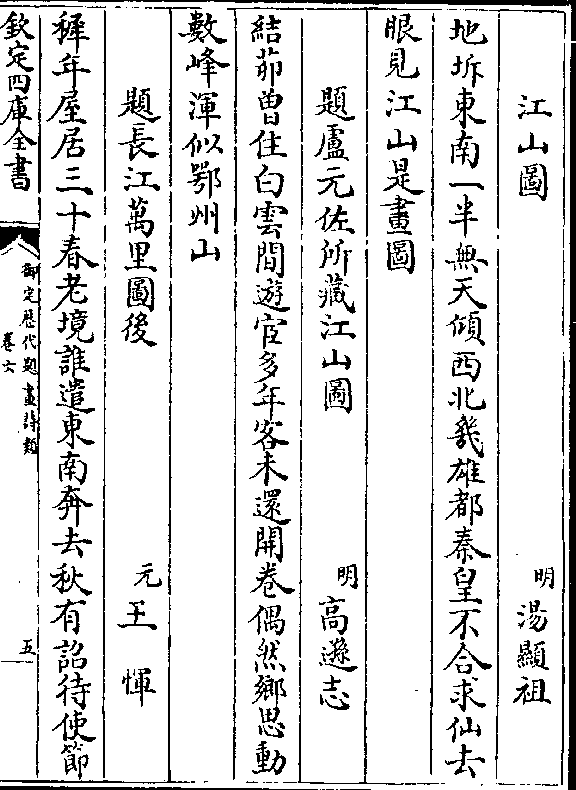 江山圖　明湯顯祖
地坼東南一半無天傾西北幾雄都秦皇不合求仙去
眼見江山是畫圖
題盧元佐所藏江山圖　明高遜志
結茆曽住白雲間遊宦多年客未還開卷偶然鄉思動
數峰渾似鄂州山
題長江萬里圖後　元王惲
穉年屋居三十春老境誰遣東南奔去秋有詔待使節
欽定四庫全書
御定歴代題畫詩類
卷六
五